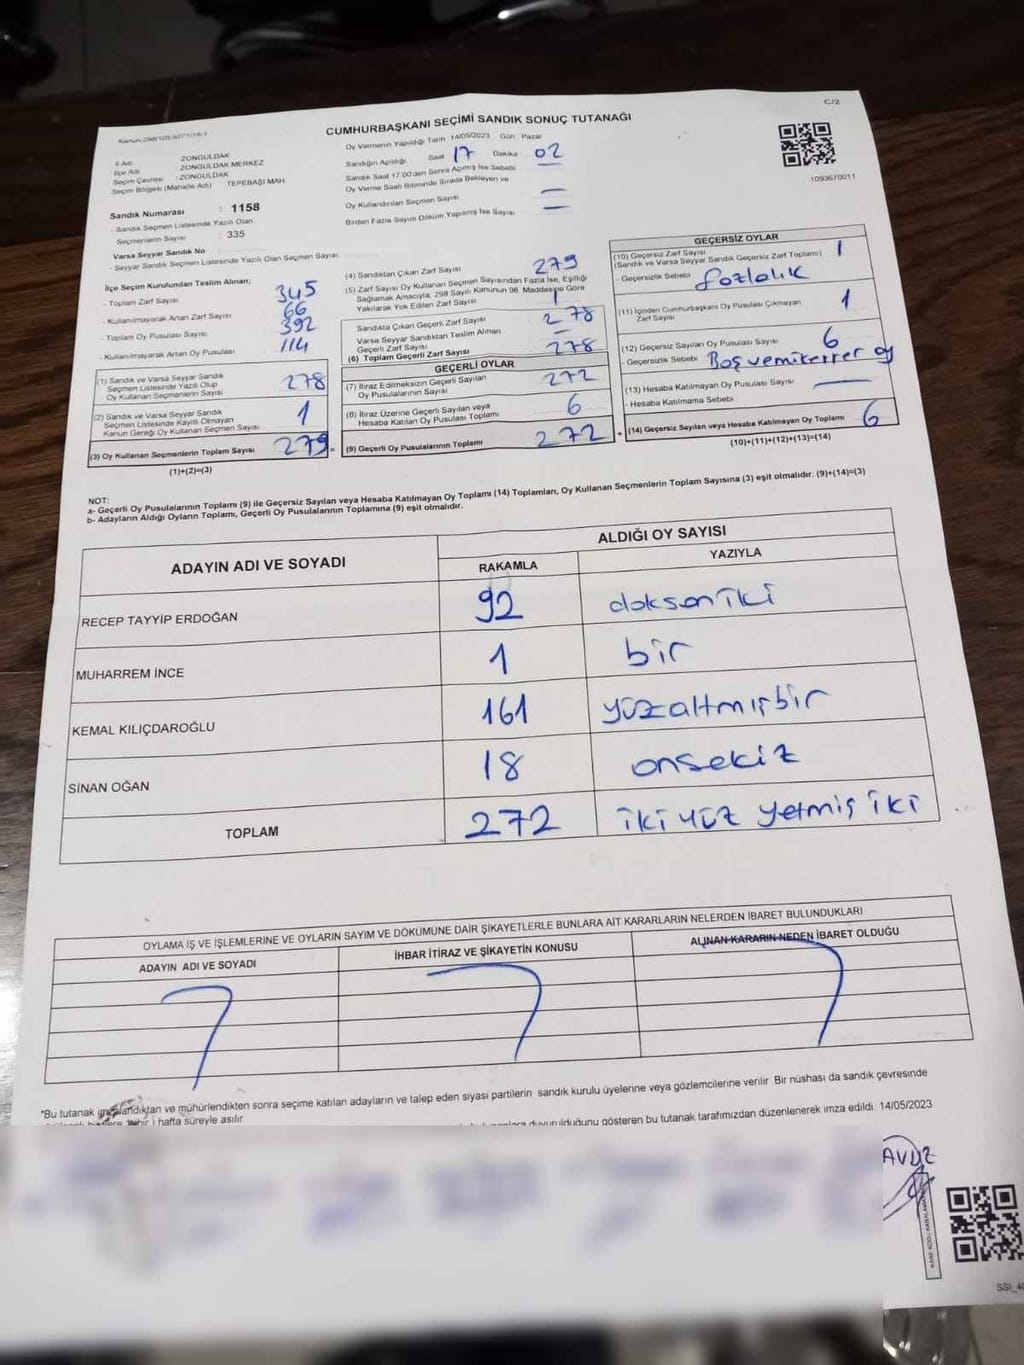 C/2
CUMHURBAŞKANI SEÇİMİ SANDIK SONUÇ TUTANAĞI
İl Adı ZONGULDAK
İlçe Adı ZONGULDAK MERKEZ
Seçim Çevresi : ZONGULDAK
Seçim Bölgesi (Mahalle Adı) TEPEBAŞI MAH.
Sandık Numarası : 1158
- Sandık Seçmen Listesinde Yazılı Olan
Seçmenlerin Sayısı : 335
Varsa Seyyar Sandık No
- Seyyar Sandık Seçmen Listesinde Yazılı Olan Seçmen Sayısı
Oy Vermenin Yapıldığı Tarih 14/05/2023 Gün Pazar
Sandığın Açıldığı Saat 17 Dakika 02
Sandık Saat 17:00'den Sonra Açılmış İse Sebebi —
Oy Verme Saati Bitiminde Sırada Bekleyen ve
Oy Kullandırılan Seçmen Sayısı —
Birden Fazla Sayım Döküm Yapılmış İse Sayısı —
1093670011
İlçe Seçim Kurulundan Teslim Alınan;
- Toplam Zarf Sayısı 345
- Kullanılmayarak Artan Zarf Sayısı 66
- Toplam Oy Pusulası Sayısı 392
- Kullanılmayarak Artan Oy Pusulası 114
(1) Sandık ve Varsa Seyyar Sandık
Seçmen Listesinde Yazılı Olup
Oy Kullanan Seçmenlerin Sayısı 278
(2) Sandık ve Varsa Seyyar Sandık
Seçmen Listesinde Kayıtlı Olmayan
Kanun Gereği Oy Kullanan Seçmen Sayısı 1
(3) Oy Kullanan Seçmenlerin Toplam Sayısı 279
(1)+(2)=(3)
(4) Sandıktan Çıkan Zarf Sayısı 279
(5) Zarf Sayısı Oy Kullanan Seçmen Sayısından Fazla İse, Eşitliği
Sağlamak Amacıyla, 298 Sayılı Kanunun 98. Maddesine Göre
Yakılarak Yok Edilen Zarf Sayısı 1
Sandıkta Çıkan Geçerli Zarf Sayısı 278
Varsa Seyyar Sandıktan Teslim Alınan
Geçerli Zarf Sayısı —
(6) Toplam Geçerli Zarf Sayısı 278
GEÇERLİ OYLAR
(7) İtiraz Edilmeksizin Geçerli Sayılan
Oy Pusulalarının Sayısı 272
(8) İtiraz Üzerine Geçerli Sayılan veya
Hesaba Katılan Oy Pusulası Toplamı 6
(9) Geçerli Oy Pusulalarının Toplamı 272
GEÇERSİZ OYLAR
(10) Geçersiz Zarf Sayısı
(Sandık ve Varsa Seyyar Sandık Geçersiz Zarf Toplamı) 1
- Geçersizlik Sebebi fazlalık
(11) İçinden Cumhurbaşkanı Oy Pusulası Çıkmayan
Zarf Sayısı 1
(12) Geçersiz Sayılan Oy Pusulası Sayısı 6
- Geçersizlik Sebebi Boş ve mükerrer oy
(13) Hesaba Katılmayan Oy Pusulası Sayısı —
- Hesaba Katılmama Sebebi
(14) Geçersiz Sayılan veya Hesaba Katılmayan Oy Toplamı 6
(10)+(11)+(12)+(13)=(14)
NOT:
a- Geçerli Oy Pusulalarının Toplamı (9) ile Geçersiz Sayılan veya Hesaba Katılmayan Oy Toplamı (14) Toplamları, Oy Kullanan Seçmenlerin Toplam Sayısına (3) eşit olmalıdır. (9)+(14)=(3)
b- Adayların Aldığı Oyların Toplamı, Geçerli Oy Pusulalarının Toplamına (9) eşit olmalıdır.
ADAYIN ADI VE SOYADI ALDIĞI OY SAYISI
RAKAMLA YAZIYLA
RECEP TAYYİP ERDOĞAN 92 doksan iki
MUHARREM İNCE 1 bir
KEMAL KILIÇDAROĞLU 161 yüzaltmışbir
SİNAN OĞAN 18 onsekiz
TOPLAM 272 iki yüz yetmiş iki
OYLAMA İŞ VE İŞLEMLERİNE VE OYLARIN SAYIM VE DÖKÜMÜNE DAİR ŞİKAYETLERLE BUNLARA AİT KARARLARIN NELERDEN İBARET BULUNDUKLARI
ADAYIN ADI VE SOYADI İHBAR İTİRAZ VE ŞİKAYETİN KONUSU ALINAN KARARIN NEDEN İBARET OLDUĞU
*Bu tutanak imzalandıktan ve mühürlendikten sonra seçime katılan adayların ve talep eden siyasi partilerin sandık kurulu üyelerine veya gözlemcilerine verilir. Bir nüshası da sandık çevresinde
hafta süreyle asılır.
duyurulduğunu gösteren bu tutanak tarafımızdan düzenlenerek imza edildi. 14/05/2023
AVUZ